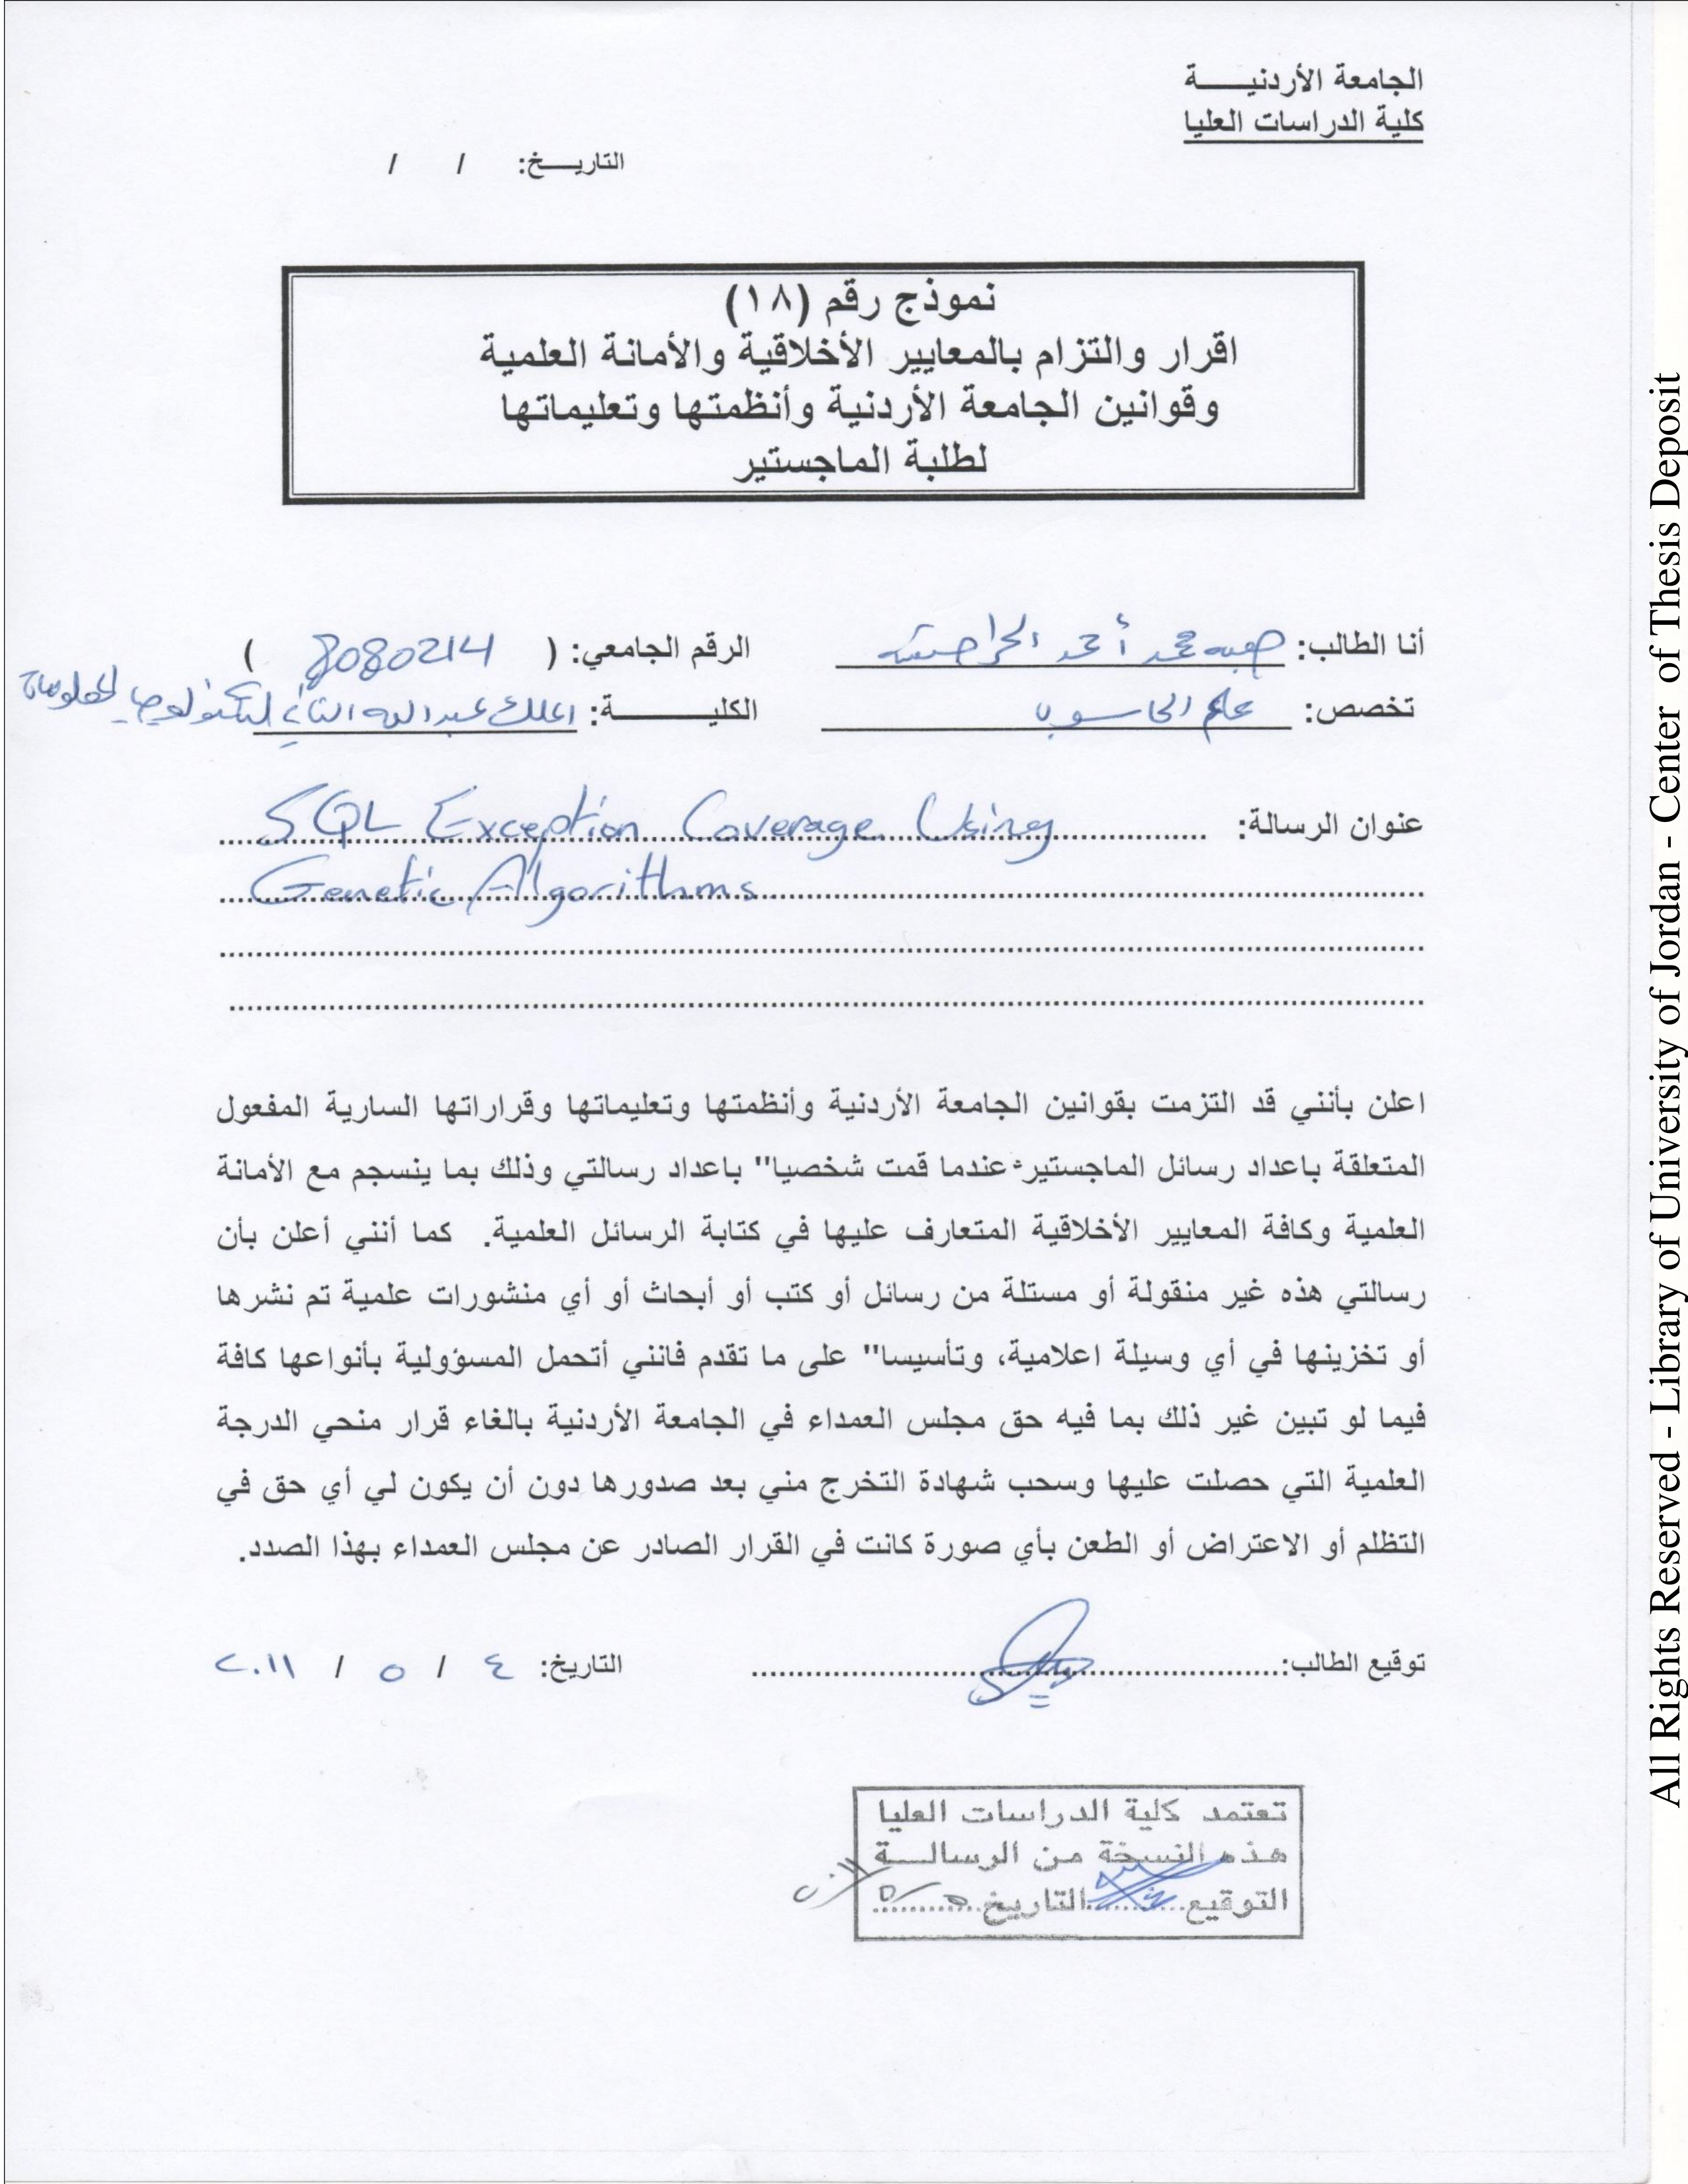 الجامعة الأردنيـــة
كلية الدراسات العليا
التاريـــخ: / /
نموذج رقم (١٨)
اقرار والتزام بالمعايير الأخلاقية والأمانة العلمية
وقوانين الجامعة الأردنية وأنظمتها وتعليماتها
لطلبة الماجستير
أنا الطالب: هبه محمد أحمد الحراحشه الرقم الجامعي: ( 8080214 )
تخصص: علم الحاسوب الكليـــــة: الملك عبدالله الثاني لتكنولوجيا المعلومات
عنوان الرسالة: SQL Exception Coverage Using
Genetic Algorithms
اعلن بأنني قد التزمت بقوانين الجامعة الأردنية وأنظمتها وتعليماتها وقراراتها السارية المفعول
المتعلقة باعداد رسائل الماجستير عندما قمت شخصيا" باعداد رسالتي وذلك بما ينسجم مع الأمانة
العلمية وكافة المعايير الأخلاقية المتعارف عليها في كتابة الرسائل العلمية. كما أنني أعلن بأن
رسالتي هذه غير منقولة أو مستلة من رسائل أو كتب أو أبحاث أو أي منشورات علمية تم نشرها
أو تخزينها في أي وسيلة اعلامية، وتأسيسا" على ما تقدم فانني أتحمل المسؤولية بأنواعها كافة
فيما لو تبين غير ذلك بما فيه حق مجلس العمداء في الجامعة الأردنية بالغاء قرار منحي الدرجة
العلمية التي حصلت عليها وسحب شهادة التخرج مني بعد صدورها دون أن يكون لي أي حق في
التظلم أو الاعتراض أو الطعن بأي صورة كانت في القرار الصادر عن مجلس العمداء بهذا الصدد.
توقيع الطالب: التاريخ: ٤ / ٥ / ٢٠١١
تعتمد كلية الدراسات العليا
هذه النسخة من الرسالـــة
التوقيع التاريخ ٥/٥/٢٠١١
All Rights Reserved - Library of University of Jordan - Center of Thesis Deposit